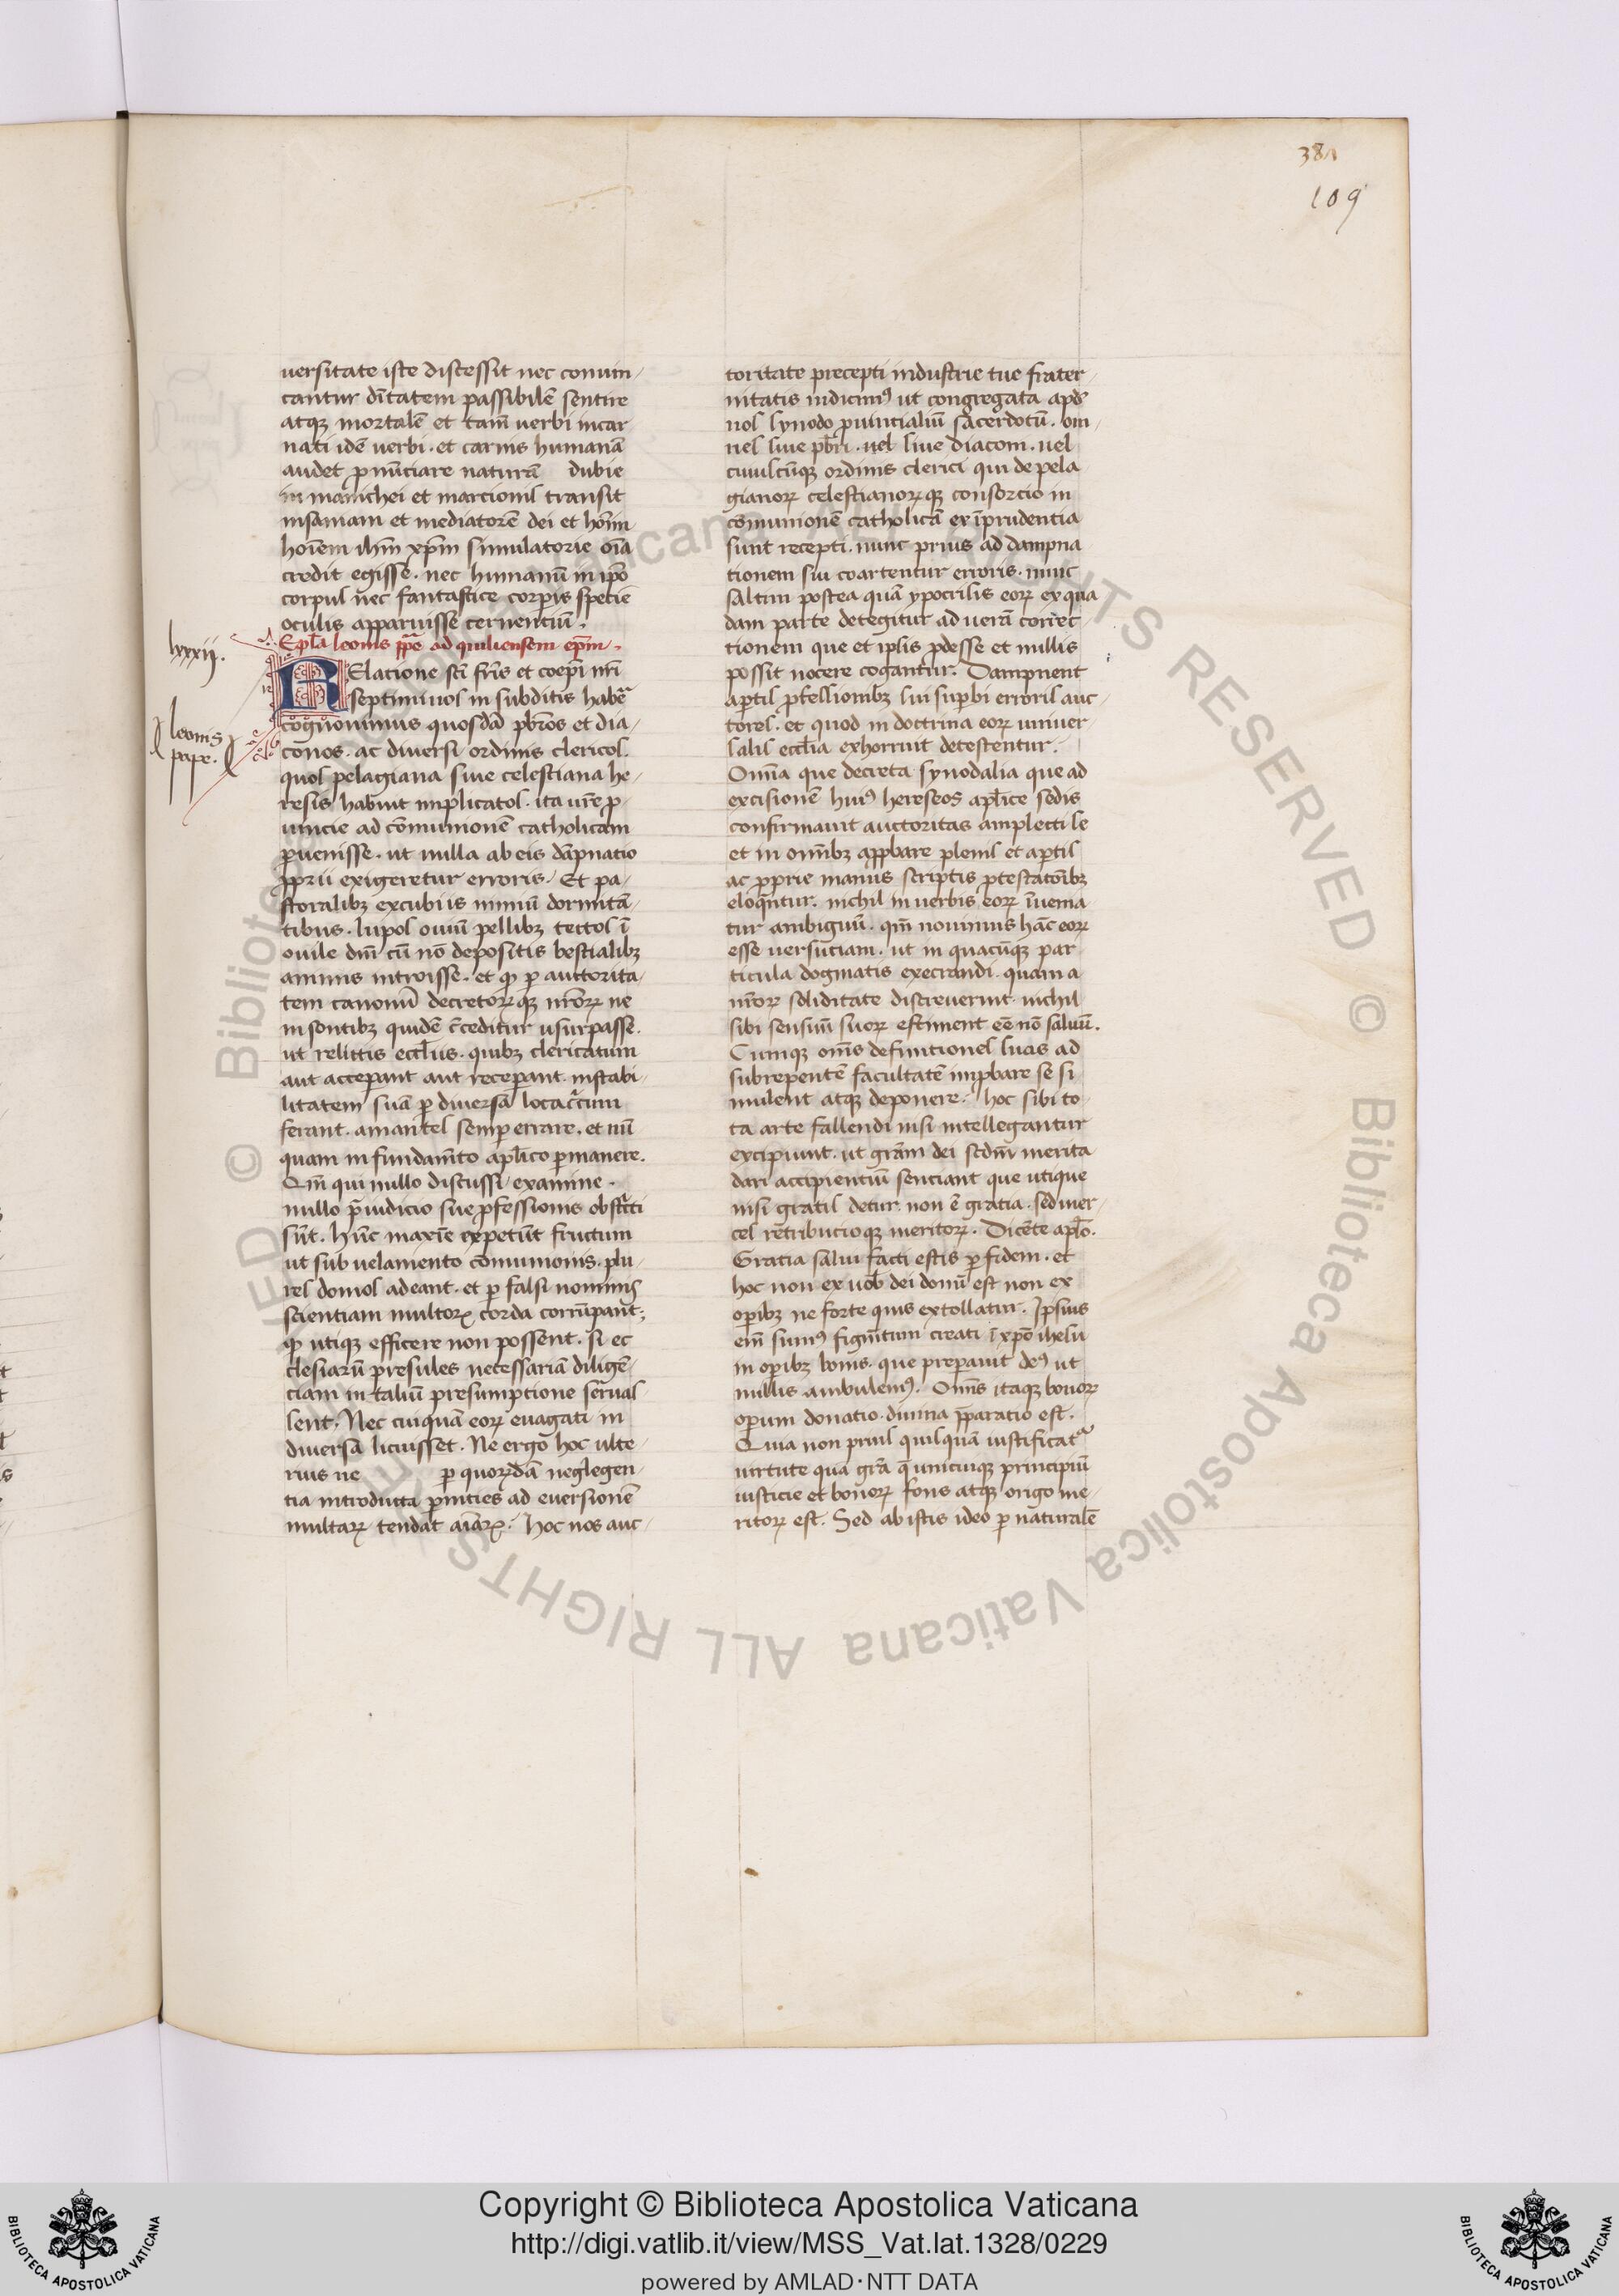 381
109
uersitate iste discessit nec conuin-
cantur dītatem passibilē sentire
atqꝫ mortalē et tam̄ uerbi incar
nati idē uerbi . et carnis humanā
audet ꝓnūciare naturā dubie
in manichei et marcionis transit
insaniam et mediatorē dei et hoīm
hoīem ihm̄ xp̄m simulatorie oīa
credit egisse . nec humanū in ip̄o
corpus nec fantastice corꝑis specie
oculis apparuisse cernentiū .
lxxxij.
Epl̄a leonis pp̄e ad quiliensem ep̄m .
leonis
pape .
RElacione scī fr̄is et coep̄i nr̄i
septimi uos in subditis habēr
cognouimus quosdā pb̄ros et dia-
conos . ac diuersi ordinis clericos .
quos pelagiana siue celestiana he-
resis habuit implicatos . ita ur̄e ꝓ
uincie ad cōmunionē catholicam
ꝑuenisse . ut nulla ab eis dāpnatio
ꝓprii exigeretur erroris . Et pa-
storalibꝫ excubiis nimiū dormitā-
tibus . lupos ouiū pellibꝫ tectos ī
ouile dn̄i cū nō depositis bestialibꝫ
animis introisse . et qꝫ ꝑ auctorita-
tem canonū decretorꝝqꝫ nr̄orꝝ ne
insontibꝫ quidē c̄ceditur usurpasse .
ut relictis eccl̄iis . quibꝫ clericatum
aut acceꝑant aut receꝑant . instabi-
litatem suā ꝑ diuersa loca c̄cum
ferant . amantes semꝑ errare . et nū
quam in fundam̄to apl̄ico ꝑmanere .
Qm̄ qui nullo discussi examine .
nullo p̄iudicio sue ꝓfessionis obstr̄cti
sūt . hūc maxīe expetūt fructum
ut sub uelamento cōmunionis . plu-
res domos adeant . et ꝑ falsi nominis
scientiam multorꝝ corda corrūpant ;
qꝫ utiqꝫ efficere non possent . si ec
clesiarū presules necessariā diligē-
ciam in taliū presumptione seruas-
sent . Nec cuiquā eorꝝ euagati in
diuersa licuisset . Ne ergo hoc ulte-
rius ne ꝑ quorꝝdā neglegen-
tia introducta ꝑnicies ad euersionē
multarꝝ tendat aīarꝝ . hoc nos auc-
toritate precepti industrie tue frater-
nitatis indicimꝰ ut congregata apd̄
uos synodo ꝓuincialiū sacerdotū . om-
nes siue pb̄ri . uel siue diaconi . uel
cuiuscūqꝫ ordinis clerici qui de pela
gianorꝝ celestianorꝝqꝫ consorcio in
cōmunionē catholicā ex īprudentia
sunt recepti . nunc prius ad dampna
tionem sui coartentur erroris . nunc
saltim postea quā ypocrisis eorꝝ ex qua
dam parte detegitur ad uerā correc-
tionem que et ipsis ꝓdesse et nullis
possit nocere cogantur . Dampnent
aꝑtis ꝓfessionibꝫ sui suꝑbi erroris auc-
tores . et quod in doctrina eorꝝ uniuer-
salis eccl̄ia exhorruit detestentur .
Omīa que decreta synodalia que ad
excisionē huiꝰ hereseos apl̄ice sedis
confirmauit auctoritas amplecti se
et in omībꝫ apꝓbare plenis et aꝑtis
ac ꝓprie manus scriptis ꝓtestacōibꝫ
eloquātur . nichil in uerbis eorꝝ īuenia-
tur ambiguū . qm̄ nouimus hāc eorꝝ
esse uersuciam . ut in quacūqꝫ par
ticula dogmatis execrandi . quam a
nr̄orꝝ soliditate discreuerint . nichil
sibi sensuū suorꝝ estiment eē nō saluū .
Cumqꝫ omīs definitiones lucis ad
subrepentē facultatē impbare se si
mulent atqꝫ deponere . hoc sibi to-
ta arte fallendi nisi intellegantur
excipiunt . ut gr̄am dei scdm̄ merita
dari accipientiū senciant que utique
nisi gratis detur non ē gratia . sed mer-
ces retribucioqꝫ meritorꝝ . Dicēte apl̄o .
Gratia salui facti estis ꝑ fidem . et
hoc non ex uob̄ dei donū est non ex
oꝑibꝫ ne forte quis extollatur . Ipsius
em̄ sumꝰ figm̄tum creati ī xp̄o ihesu
in oꝑibꝫ bonis . que preparauit deꝰ ut
in illis ambulemꝰ . Omīs itaqꝫ bonorꝝ
oꝑum donatio . diuina p̄paratio est .
Quia non prius quisquā iustificatᷣ
uirtute quā gr̄a q̄ unicuiqꝫ principiū
iusticie et bonorꝝ fons atqꝫ origo me-
ritorꝝ est . Sed ab istis ideo ꝑ naturalē
© Biblioteca Apostolica Vaticana ALL RIGHTS RESERVED
Copyright © Biblioteca Apostolica Vaticana
http://digi.vatlib.it/view/MSS_Vat.lat.1328/0229
powered by AMLAD·NTT DATA
BIBLIOTECA APOSTOLICA VATICANA
BIBLIOTECA APOSTOLICA VATICANA